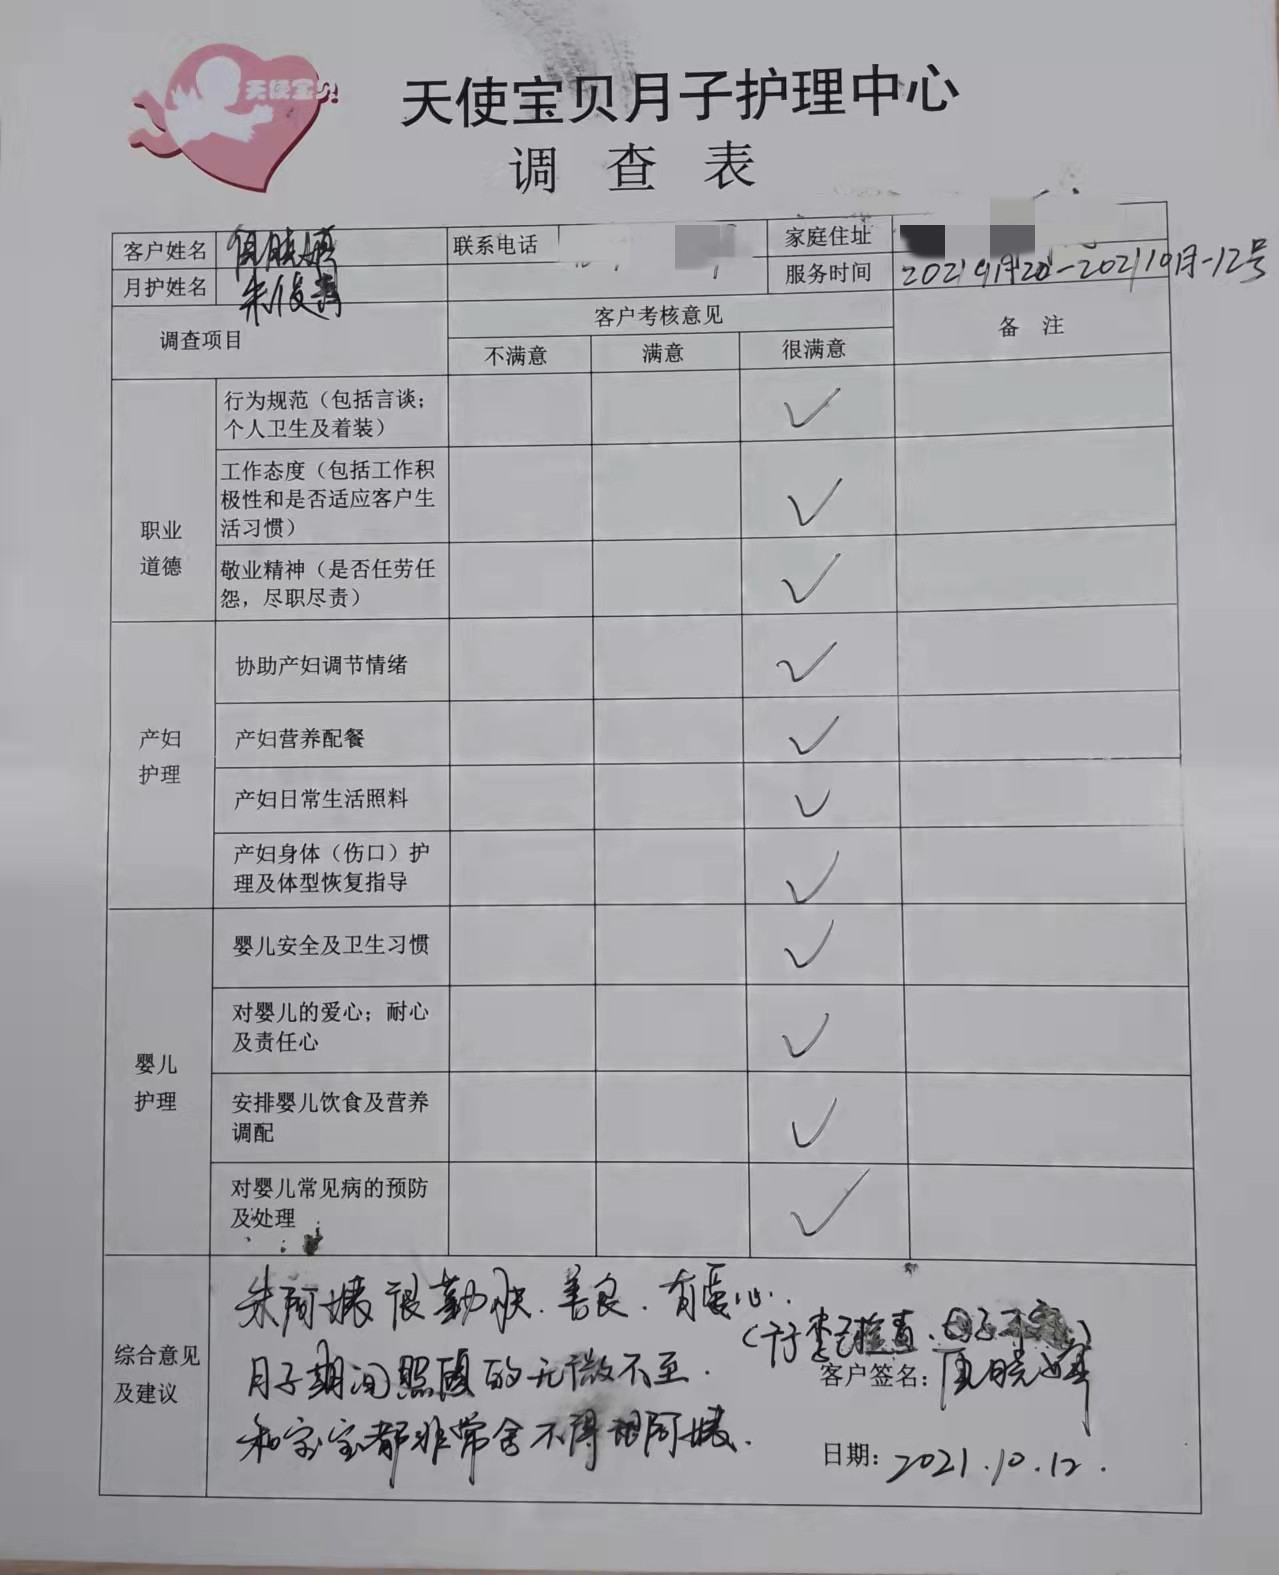 天使宝贝
天使宝贝月子护理中心
调查表
客户姓名
联系电话
家庭住址
月护姓名 朱俊
服务时间 -202110月-12号
调查项目
客户考核意见
备注
不满意 满意 很满意
职业
道德
行为规范（包括言谈；
个人卫生及着装）
✓
工作态度（包括工作积
极性和是否适应客户生
活习惯）
✓
敬业精神（是否任劳任
怨，尽职尽责）
✓
产妇
护理
协助产妇调节情绪 ✓
产妇营养配餐 ✓
产妇日常生活照料 ✓
产妇身体（伤口）护
理及体型恢复指导
✓
婴儿
护理
婴儿安全及卫生习惯 ✓
对婴儿的爱心；耐心
及责任心
✓
安排婴儿饮食及营养
调配
✓
对婴儿常见病的预防
及处理
✓
综合意见
及建议
朱阿姨很勤快.善良.有爱心.
检查.
月子期间照顾的无微不至.
客户签名：晓
和宝宝都非常舍不得阿姨.
日期：2021.10.12.